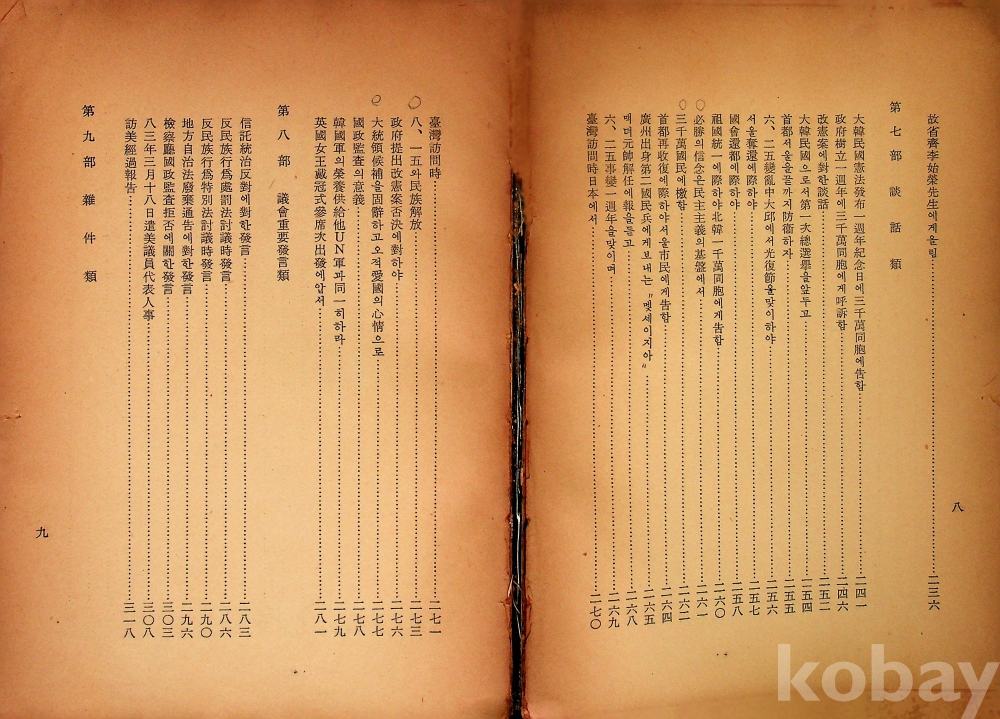 故省齊李始榮先生에게올림 二三六
第七部 談話類
大韓民國憲法發布一週年紀念日에三千萬同胞에告함 二四一
政府樹立一週年에三千萬同胞에게呼訴함 二四六
改憲案에對한談話 二五二
大韓民國으로서第一次總選擧을앞두고 二五四
首都서울을끝까지防衞하자 二五五
六、二五變亂中大邱에서光復節을맞이하야 二五六
서울奪還에際하야 二五七
國會還都에際하야 二五八
祖國統一에際하야北韓一千萬同胞에게告함 二六〇
必勝의信念은民主主義의基盤에서 二六一
三千萬國民에檄함 二六二
首都再收復에際하야서울市民에게告함 二六四
廣州出身第二國民兵에게보내는〝멧세이지아〟 二六五
매며元帥解任에報을듣고 二六八
六、二五事變一週年을맞이며 二六九
臺灣訪問時日本에서 二七〇
八
臺灣訪問時 二七一
八、一五와民族解放 二七三
政府提出改憲案否決에對하야 二七六
大統領候補을固辭하고오적愛國의心情으로 二七七
國政監査의意義 二七八
韓國軍의榮養供給他UN軍과同一히하라 二七九
英國女王戴冠式參席次出發에앞서 二八一
第八部 議會重要發言類
信託統治反對에對한發言 二八三
反民族行爲處罰法討議時發言 二八六
反民族行爲特別法討議時發言 二九〇
地方自治法廢棄通告에對한發言 二九六
檢察廳國政監査拒否에關한發言 三〇三
八三年三月十八日遣美議員代表人事 三〇八
訪美經過報告 三一八
第九部 雜件類
九
kobay